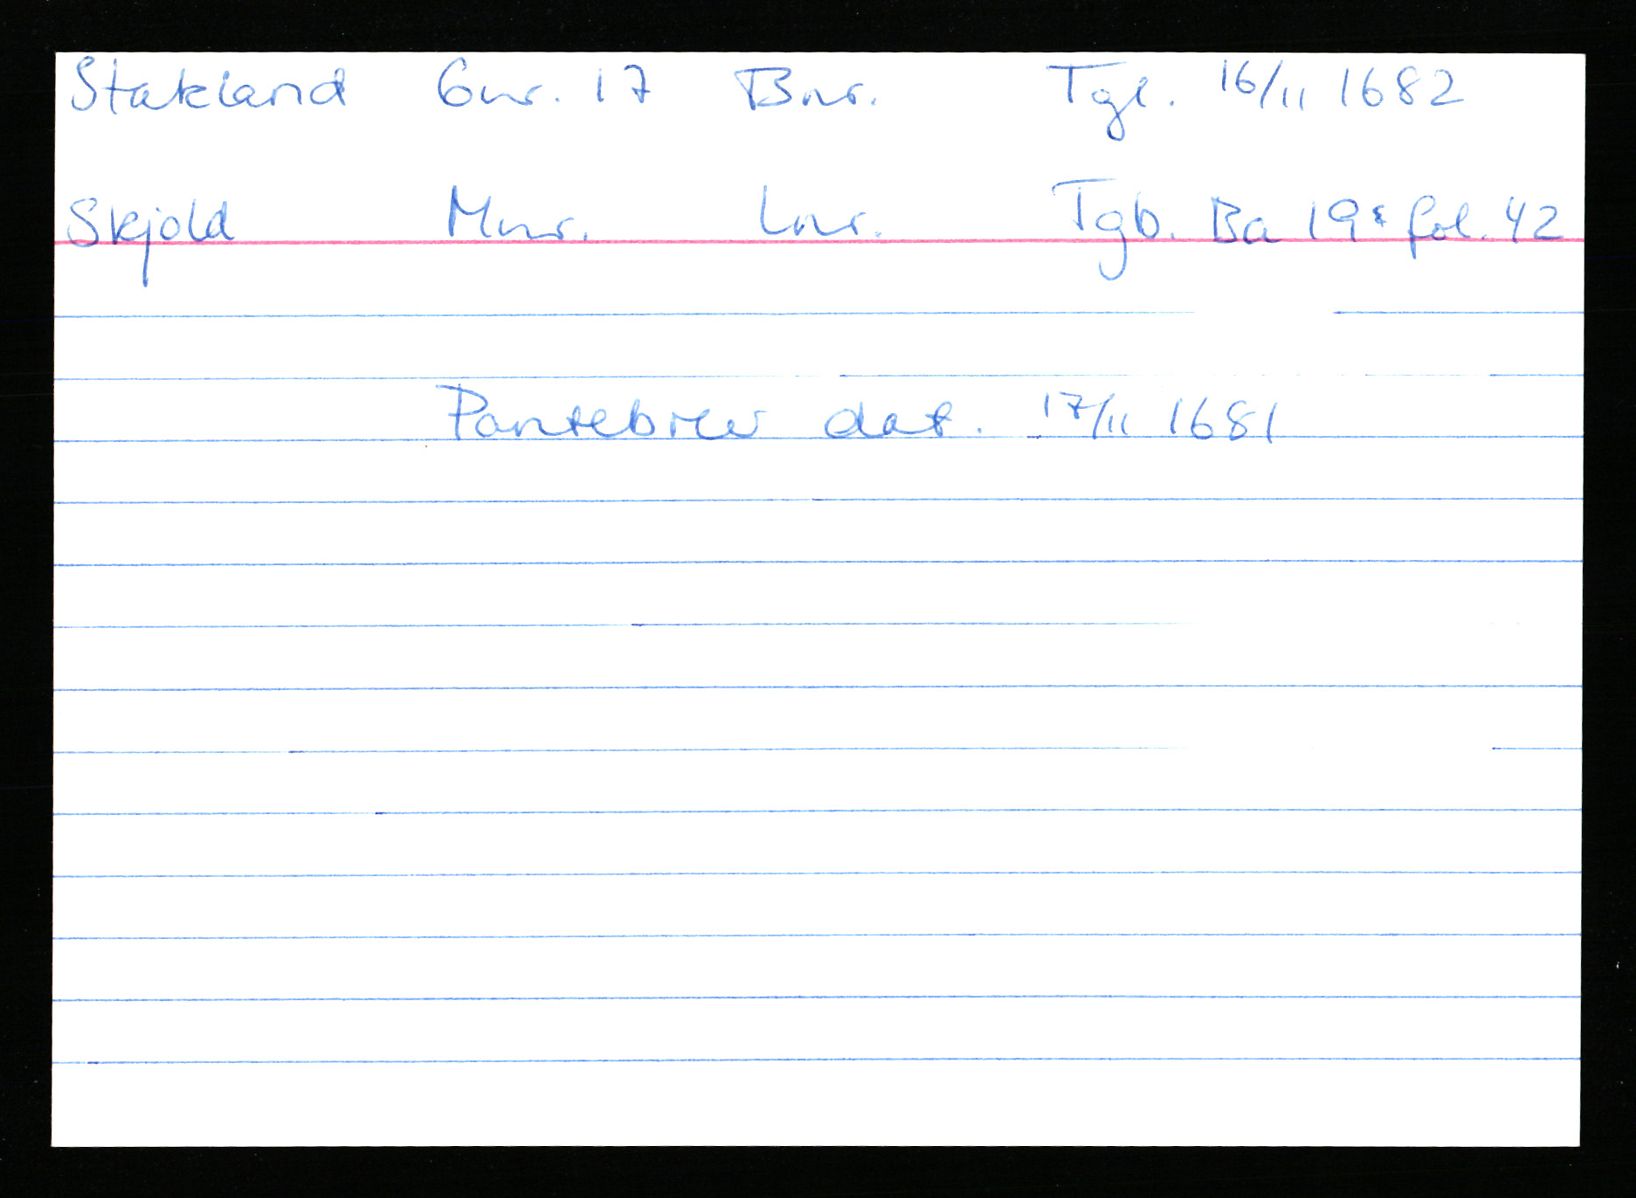 Stakland Gnr. 17 Bnr. Tgl. 16/11 1682
Skjold Mnr. Lnr. Tgb. Ba 19 fol. 42
Pantebrev dat. 17/11 1681